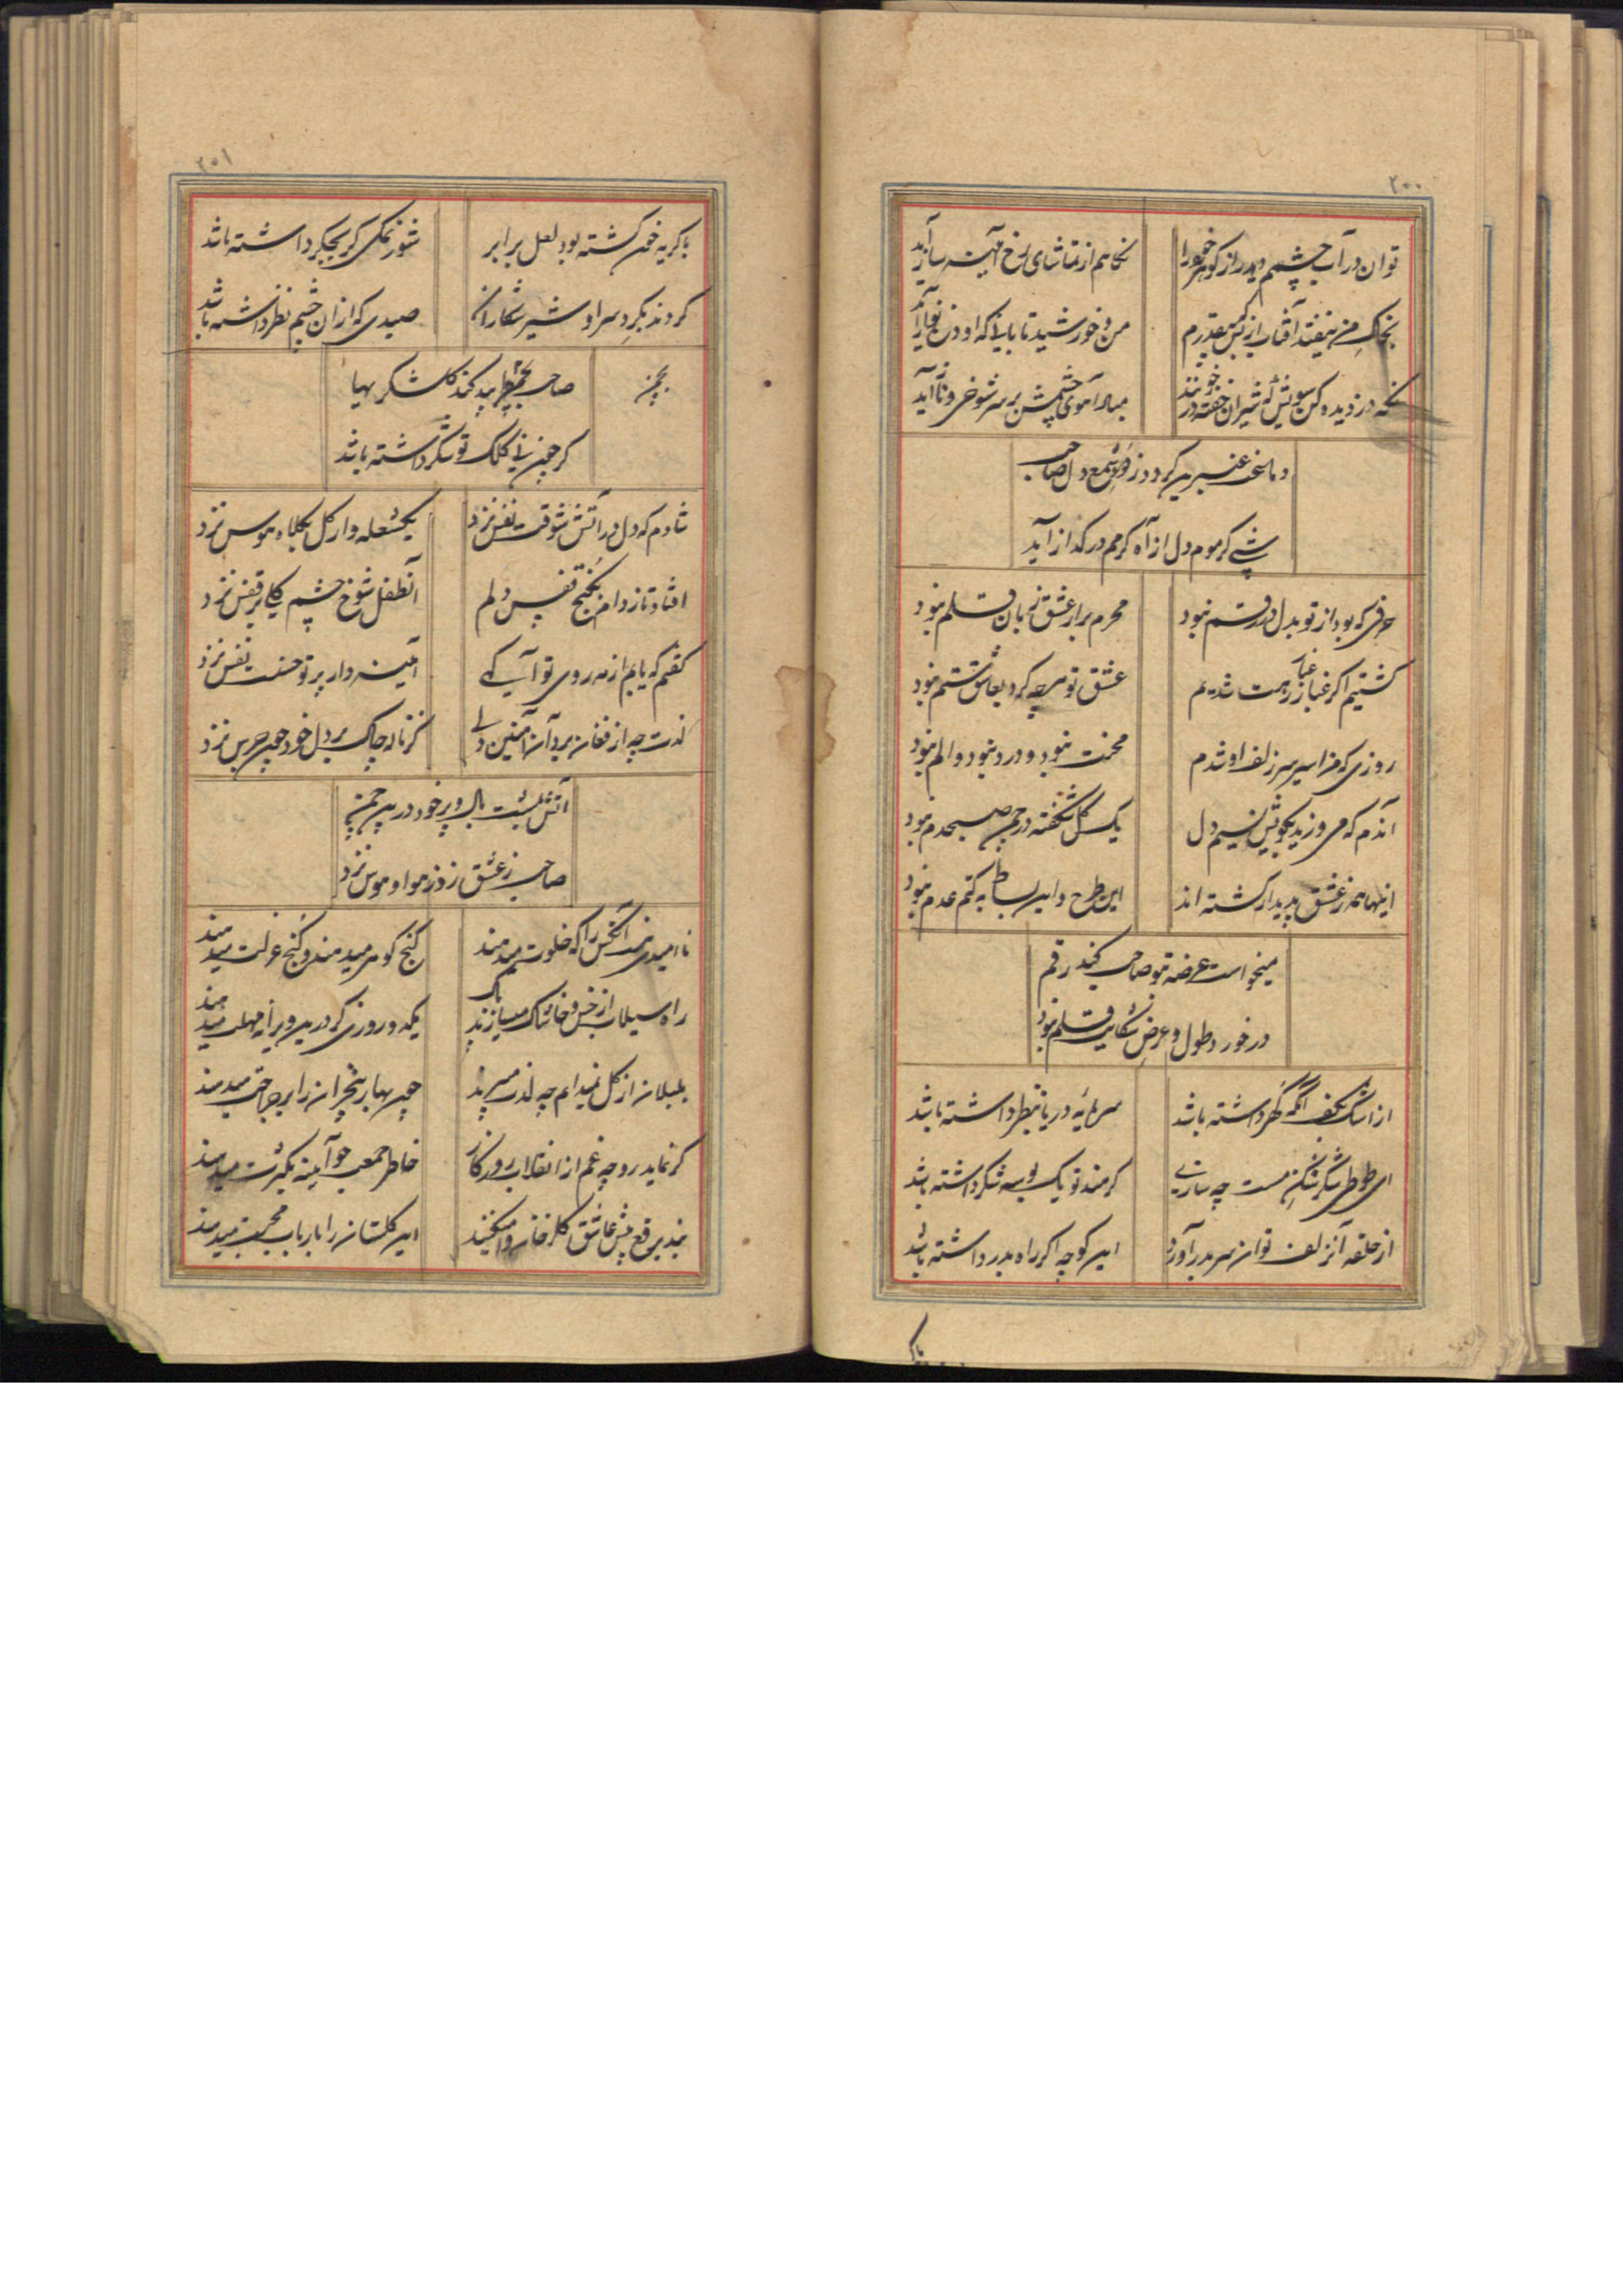 ۲۰۰
توان در آب چشمم دید راز گوهر خود را
نگاهم از تماشای رخ آئینه ساز آید
بخاک من نیفتد آفتاب از بس
من و خورشید تابانی که او
نگه دزدیده کن سویش که شیران خفته در خونند
مبادا آهوی چشمش بر سر شوخی و ناز آید
دماغت عنبرین گردد ز دود شمع دل صاحب
شبی کز موم دل از آه گرمم در گداز آید
حرفی که بود از تو بدل در رقم نبود
محرم براز عشق زبان قلم نبود
گشتیم اگر غبار رهت شدیم
عشق تو هر چه کرد بعاشق ستم نبود
روزی که من اسیر سر زلف او شدم
محنت نبود و درد نبود و الم نبود
آندم که می وزید بکویش نسیم دل
یک گل شکفته در چمن صبحدم نبود
اینها همه ز عشق پدیدار گشته اند
این طرح و این بساط به کتم عدم نبود
میخواست عرضه تو صاحب کند رقم
در خورد طول و عرض شکایت قلم نبود
از اشک بکف آنکه گهر داشته باشد
سرمایه دریا بنظر داشته باشد
ای طوطی شکر شکن مست چه سازی
گر هند تو یک بوسه شکر داشته باشد
از حلقه آن زلف توان سر بدر آورد
این کوچه اگر راه بدر داشته باشد
۲۰۱
با گریه خون گشته بود لعل برابر
شور نمکی گر بجگر داشته باشد
گردند بگرد سر او شیر شکاران
صیدی که از آن چشم نظر داشته باشد
صاحب کند شکر بها
گر چون نی کلک تو شکر داشته باشد
شادم که دل در آتش شوقت نفس نزد
یک شعله وار گل بکلاه هوس نزد
افتاد تا ز دام بکنج قفس دلم
آن طفل شوخ چشم گلی بر قفس نزد
گفتم که یابم از مه روی تو آگهی
آئینه دار پرتو حسنت نفس نزد
لذت چه از فغان برد آن آهنین دلی
کز ناله چاک بر دل خود چون جرس نزد
آتش بال و پر خود در این چمن
صاحب ز عشق زد ز هوا و هوس نزد
ناامیدی آنکس را که خلوت میدهند
گنج گوهر میدهند و کنج عزلت میدهند
راه سیلاب از خس و خاشاک میسازند پاک
یکدو روزی گر در این ویرانه مهلت میدهند
بلبلان از گل نمیدانم چه لذت میبرند
چون بهار بیخزان را بر جراحت میدهند
گر نماید رو چه غم از انقلاب روزگار
خاطر جمعی چو آیینه بکثرت میدهند
بند برقع پیش عاشق گلرخان وا میکنند
این گلستان را بارباب محبت میدهند